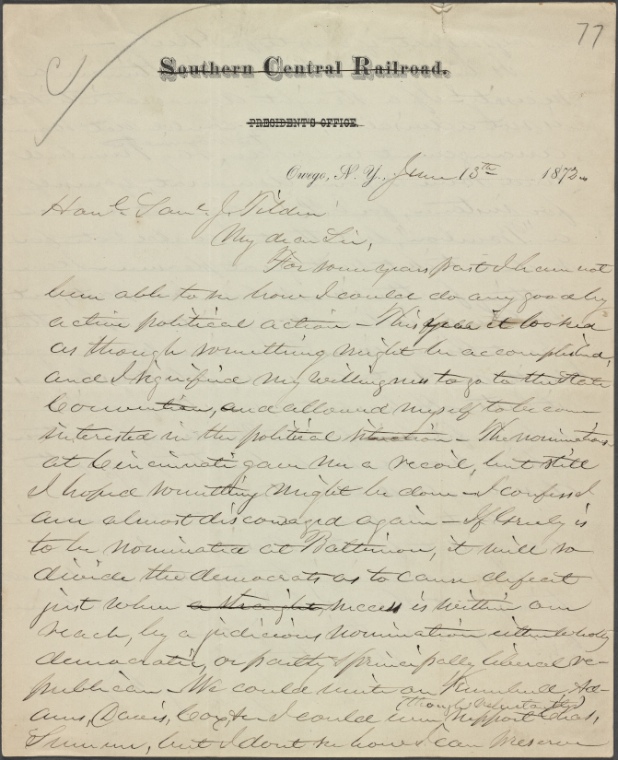 77
Southern Central Railroad.
PRESIDENT'S OFFICE.
Owego, N. Y., June 13th 1872.
Honle Saml J. Tilden
My dear Sir,
For some years past I have not
been able to see how I could do any good by
active political action – This year it looked
as though something might be accomplished,
and I signified my willingness to go to the State
Convention, and allowed myself to become
interested in the political situation – The nomination
at Cincinnati gave me a recoil, but still
I hoped something might be done – I confess I
am almost discouraged again – If Greely is
to be nominated at Baltimore, it will so
divide the democrats as to cause defeat
just when a straight, success is within our
reach, by a judicious nomination either wholly
democratic, or partly & principally liberal re-
publican – We could unite on Trumbull, Ad-
ams, Davis, Cox, & I could even support
(though reluctantly)
Sumner, but I dont see how I can preserve